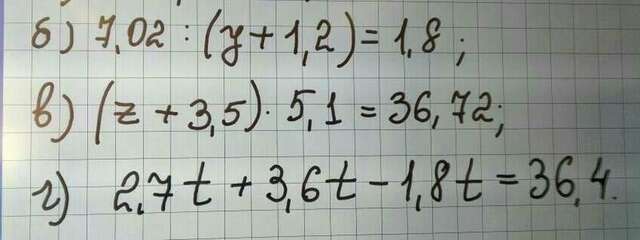 б) 7,02 : (y + 1,2) = 1,8 ;
в) (z + 3,5) · 5,1 = 36,72;
г) 2,7t + 3,6t - 1,8t = 36,4.